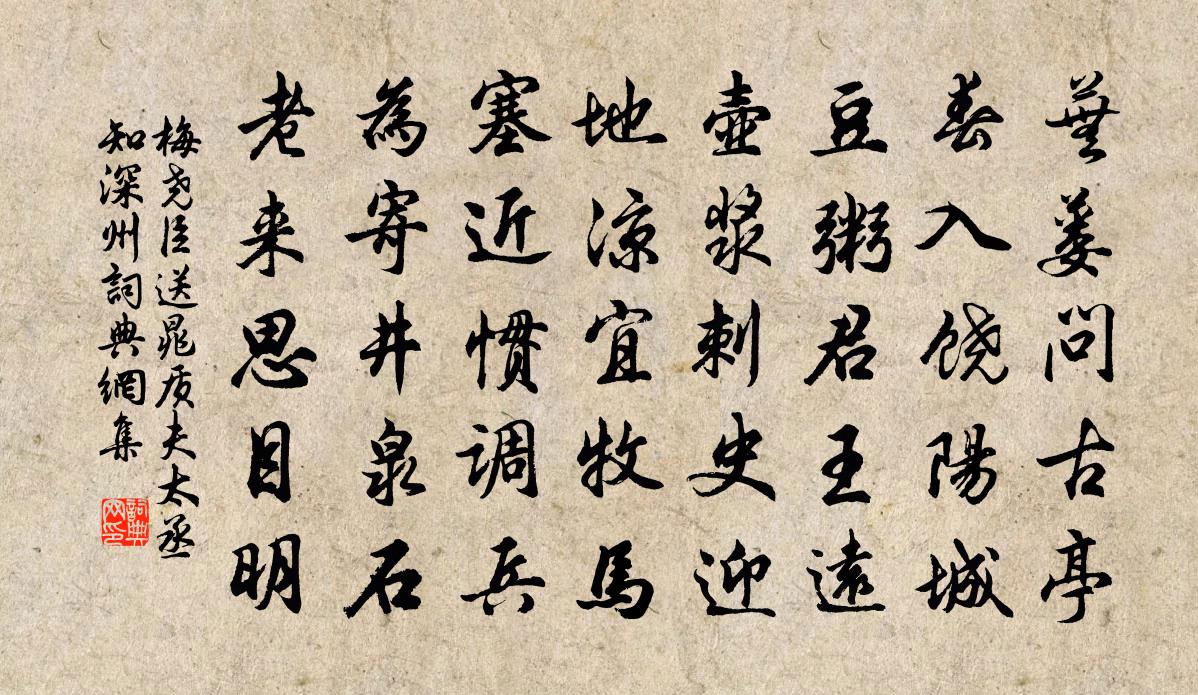 蕪蔞問古亭
春入饶陽城
豆粥君王遠
壷漿刺史迎
地凉宜牧馬
塞近慣调兵
為寄井泉石
老来思目明
梅尭臣送晁质夫太丞
知深州詞典網集
詞典
网印